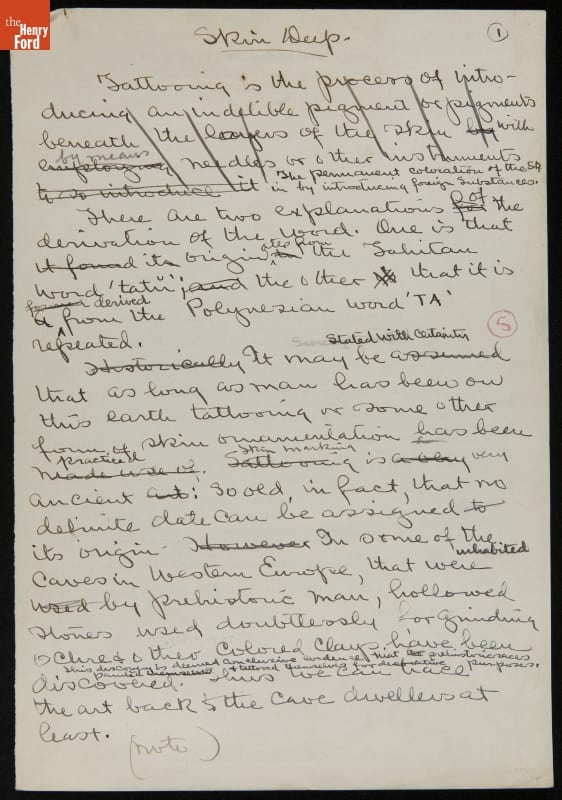 the
Henry
Ford
Skin Deep.
1
Tattooing is the process of intro-
ducing an indelible pigment or pigments
beneath the layers of the skin by with
by means
employing needles or other instruments
The permanent coloration of the
to so introduce it in by introducing foreign substances.
There are two explanations for of the
derivation of the word. One is that
ated from
it found its origin in the Tahitan
word 'tatu'; and the other is that it is
formed derived
from the Polynesian word 'TA'
5
repeated.
stated with certainty
Historically It may be assumed
that as long as man has been on
this earth tattooing or some other
form of skin ornamentation has been
practiced skin marking
made use of. Tattooing is a very very
ancient art: So old, in fact, that no
definite date can be assigned to
its origin. However In some of the
inhabited
caves in Western Europe, that were
used by prehistoric man, hollowed
stones used doubtlessly for grinding
ochre & other colored clays have been
this discovery is deemed conclusive evidence that prehistoric races
painted themselves & tattooed themselves for decorative purposes.
discovered. Thus we can trace
the art back to the cave dwellers at
least.
(note)